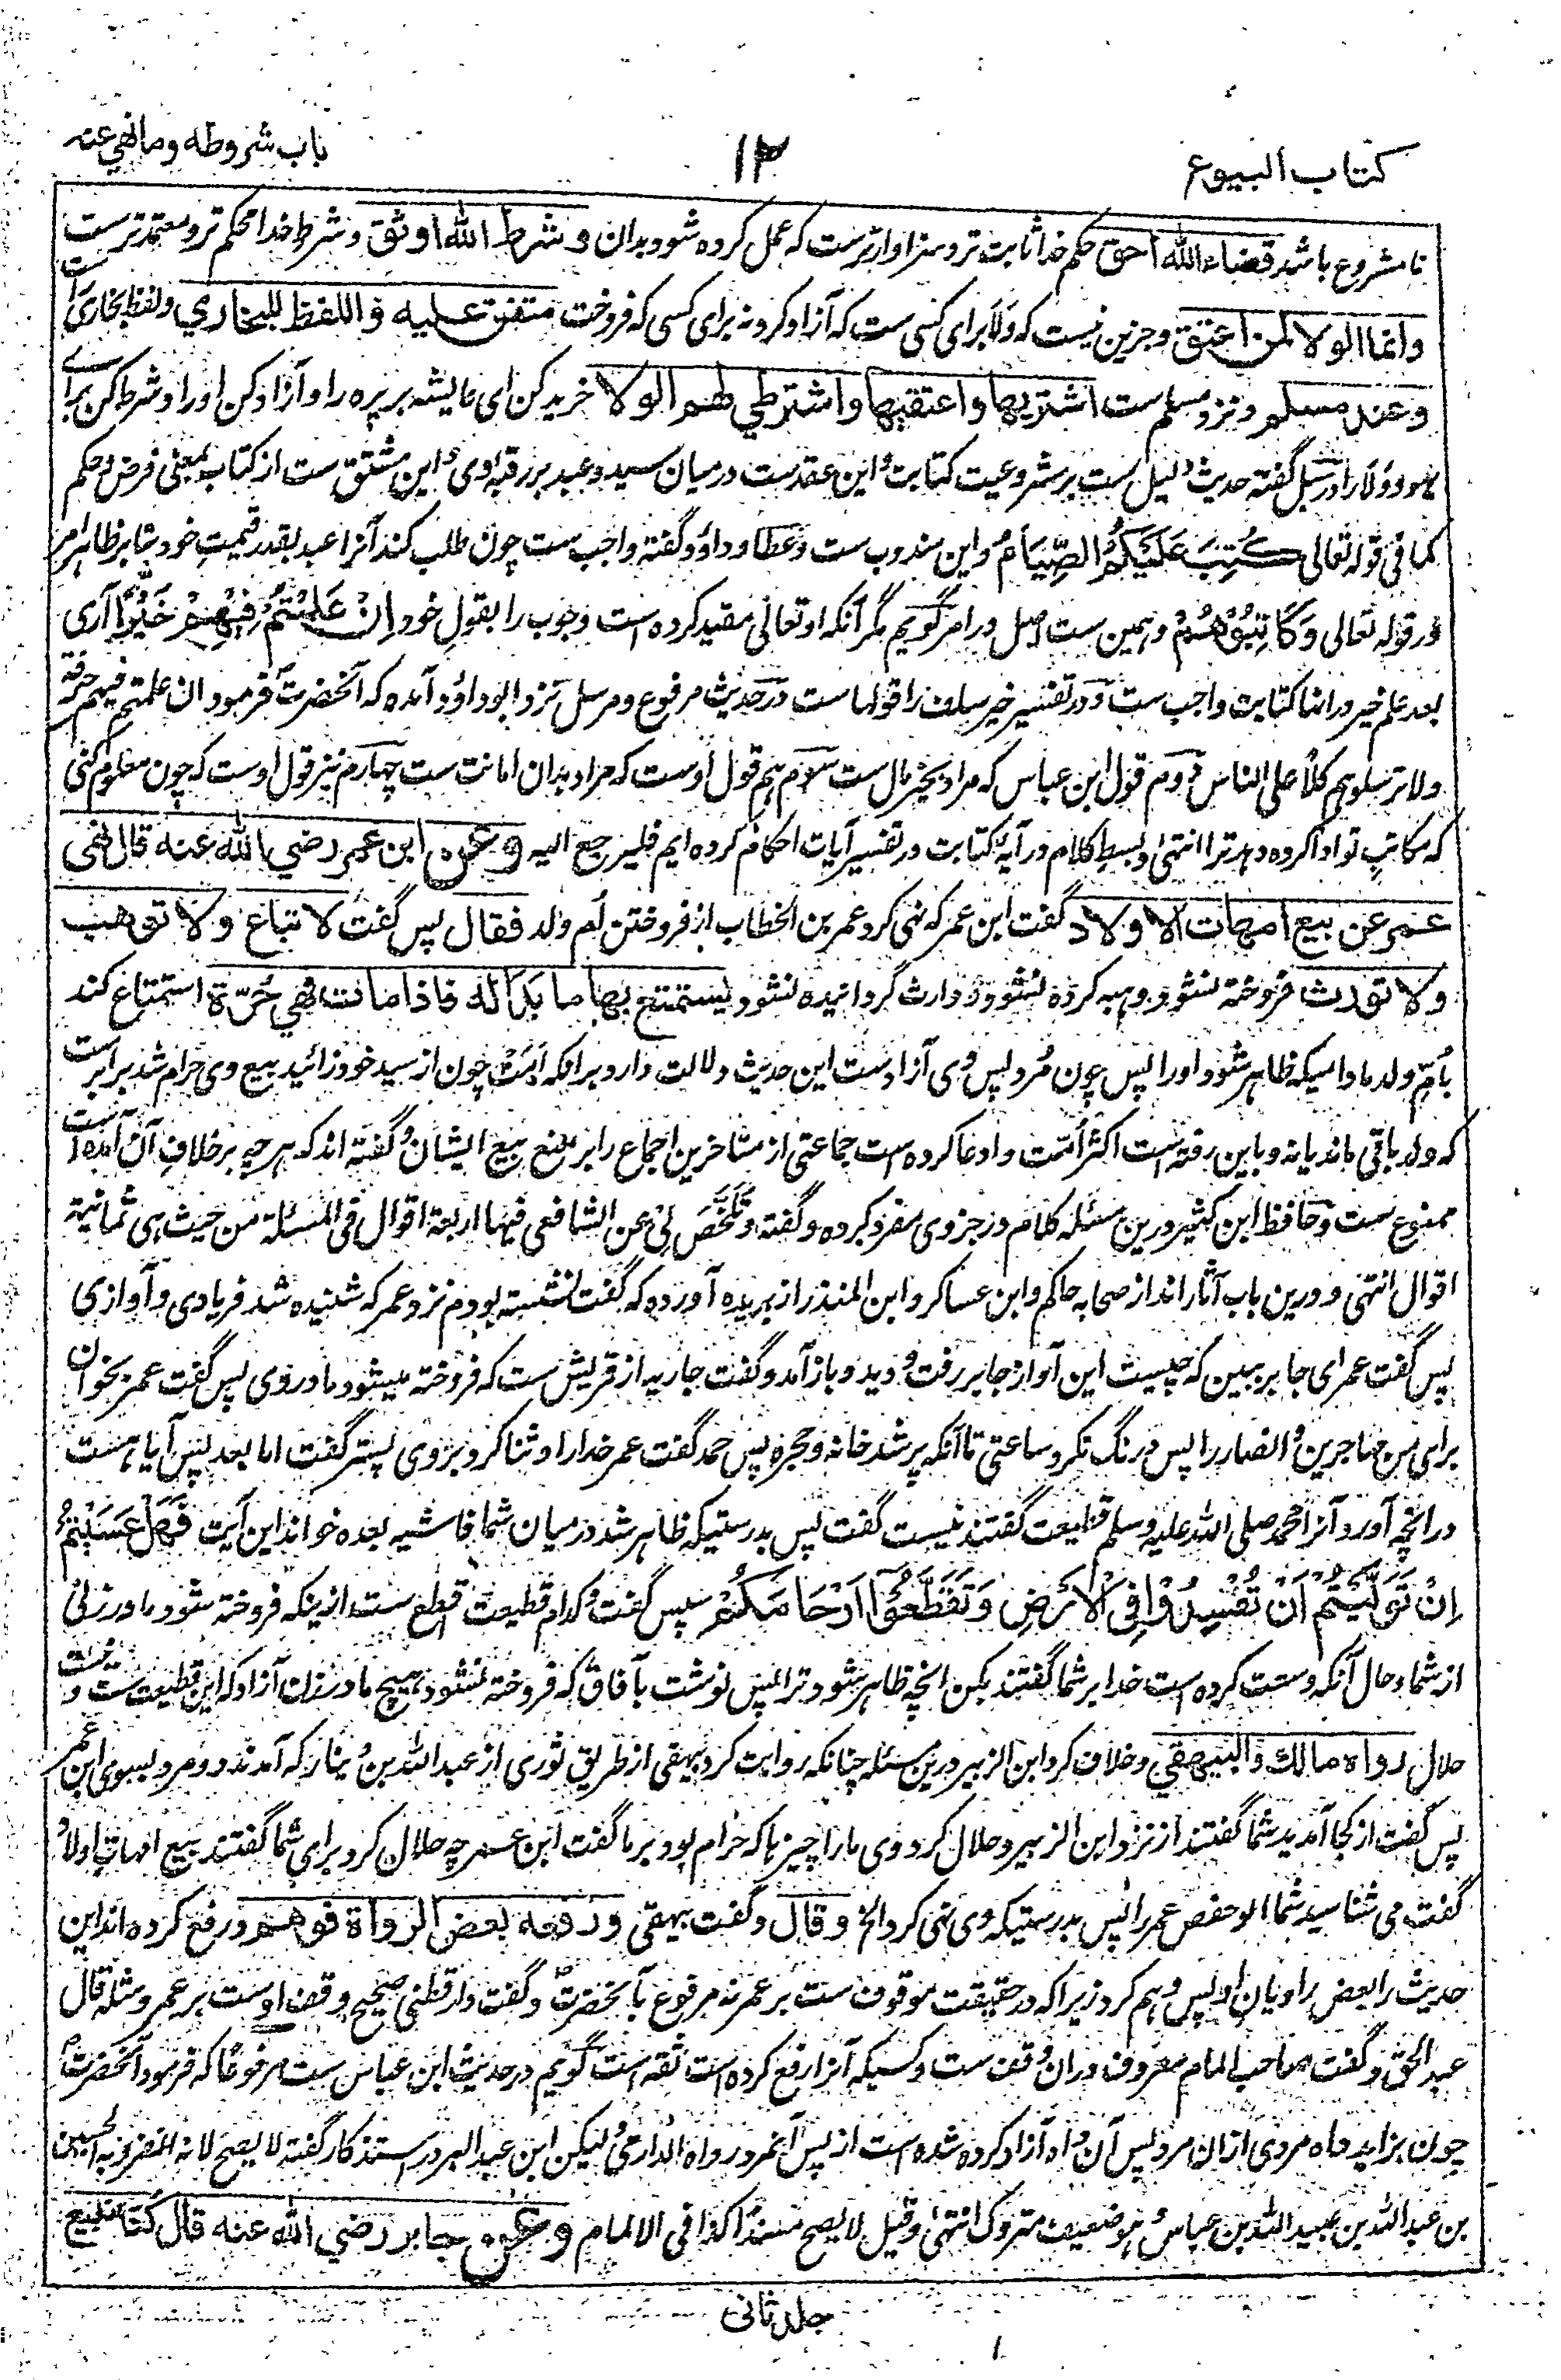 کتاب البیوع
۱۳
باب شروطه وما نهي عنه
نا مشروع باشد قضاء الله احق حکم خدا ثابت تر و سزاوار ترست که عمل کرده شود بدان و شرط الله اوثق و شرط خدا محکم تر و معتمد ترست
وانما الولا لمن اعتق و جزین نیست که وَلَا برای کسی ست که آزاد کرد نه برای کسی که فروخت متفق علیه و اللفظ للبخاري و لفظ بخاری را ست
وعند مسلم و نزد مسلم ست اشتریها و اعتقیها و اشترطي لهم الولا خرید کن ای عایشه بریره را و آزاد کن او را و شرط کن برای
یهود ولا را در سبل گفته حدیث دلیل ست بر مشروعیت کتابت و این عقد ست در میان سید و عبد بر رقبه وی و این مشتق ست از کتاب بمعنی فرض و حکم
کما فی قوله تعالی کُتِبَ عَلَیْکُمُ الصِّیَامُ و این مندوب ست و عطا و داود گفته واجب ست چون طلب کند آنرا عبد بقدر قیمت خود بنا بر ظاهر امر
در قوله تعالی وَکَاتِبُوْهُمْ و همین ست اصل در امر گویم مگر آنکه او تعالی مقید کرده است وجوب را بقول خود اِنْ عَلِمْتُمْ فِیْهِمْ خَیْرًا آری
بعد علم خیر در انها کتابت واجب ست و در تفسیر خیر سلف را قولها ست در حدیث مرفوع و مرسل نزد ابو داود آمده که آنحضرت فرمود ان علمتم فیهم حرفة
ولا ترسلوهم کلاً علی الناس دوم قول ابن عباس که مراد بخیر مال ست سوم هم قول اوست که مراد بدان امانت ست چهارم نیز قول اوست که چون معلوم کنی
که مکاتب تو ادا کرده دهد ترا انتهی و بسط کلام در آیهٔ کتابت در تفسیر آیات احکام کرده ایم فلیرجع الیه و عن ابن عمر رضي الله عنه قال نهی
عمر عن بیع امهات الاولاد گفت ابن عمر که نهی کرد عمر بن الخطاب از فروختن ام ولد فقال پس گفت لا تباع ولا توهب
ولا تورث فروخته نشود و هبه کرده نشود و وارث گردانیده نشود یستمتع بها ما بدا له فاذا مات فهي حُرّة استمتاع کند
بأم ولد مادامیکه ظاهر شود او را پس چون مُرد پس وی آزاد ست این حدیث دلالت دارد بر انکه اَمَت چون از سید خود زائید بیع وی حرام شد برابر ست
که ولد باقی ماند یا نه و باین رفته است اکثر اُمت و ادعا کرده است جماعتی از متاخرین اجماع را بر منع بیع ایشان و گفته اند که هر چه بر خلاف آن آمده ا ست
ممنوع ست و حافظ ابن کثیر درین مسئله کلام در جزوی مفرد کرده و گفته و تَلَخَّصَ لِیْ عن الشافعی فیها اربعة اقوال فی المسئلة من حیث هی ثمانیة
اقوال انتهی و درین باب آثار اند از صحابه حاکم و ابن عساکر و ابن المنذر از بریده آورده که گفت نشسته بودم نزد عمر که شنیده شد فریادی و آوازی
پس گفت عمر ای جابر ببین که چیست این آواز جابر رفت و دید و باز آمد و گفت جاریه از قریش ست که فروخته میشود مادر وی پس گفت عمر بخوان
برای من مهاجرین و انصار را پس درنگ نکرد ساعتی تا آنکه پر شد خانه و حجره پس حمد گفت عمر خدا را و ثنا کرد بر وی پستر گفت اما بعد پس آیا هست
در انچه آورد آنرا محمد صلی الله علیه وسلم قطیعت گفتند نیست گفت پس بدرستیکه ظاهر شد در میان شما فاشیه بعده خواند این آیت فَهَلْ عَسَیْتُمْ
اِنْ تَوَلَّیْتُمْ اَنْ تُفْسِدُوْا فِی الْاَرْضِ وَتُقَطِّعُوْٓا اَرْحَامَکُمْ سپس گفت و کدام قطیعت اقطع ست از ینکه فروخته شود مادر زنی
از شما و حال آنکه وسعت کرده است خدا بر شما گفتند بکن انچه ظاهر شود ترا پس نوشت بآفاق که فروخته نشود هیچ مادر زن آزاد که این قطیعت ست و نیست
حلال رواه مالك و البیهقي و خلاف کرد ابن الزبیر درین مسئله چنانکه روایت کرد بیهقی از طریق ثوری از عبد الله بن دینار که آمدند دو مرد بسوی ابن عمر
پس گفت از کجا آمدید شما گفتند از نزد ابن الزبیر و حلال کرد وی ما را چیزها که حرام بود بر ما گفت ابن عمر چه حلال کرد برای شما گفتند بیع امهات اولاد
گفت می شناسید شما ابو حفص عمر را پس بدرستیکه وی نهی کرد الخ و قال و گفت بیهقی و رفعه بعض الرواة فوهم و رفع کرده اند این
حدیث را بعض راویان او پس وهم کرد زیرا که در حقیقت موقوف ست بر عمر نه مرفوع بآنحضرت و گفت دار قطنی صحیح وقف اوست بر عمر و مثله قال
عبد الحق و گفت صاحب المام معروف دران وقف ست و کسیکه آنرا رفع کرده است ثقه است گویم در حدیث ابن عباس ست مرفوعًا که فرمود آنحضرت
چون بزاید داه مردی ازان مرد پس آن داه آزاد کرده شده است از پس آنمرد رواه الدارمی و لیکن ابن عبد البر در استذکار گفته لا یصح لانه انفرد به الحسین
بن عبد الله بن عبید الله بن عباس و هو ضعیف متروک انتهی و قیل لا یصح مسندًا کذا فی الالمام و عن جابر رضي الله عنه قال کُنّا نبیع
جلد ثانی